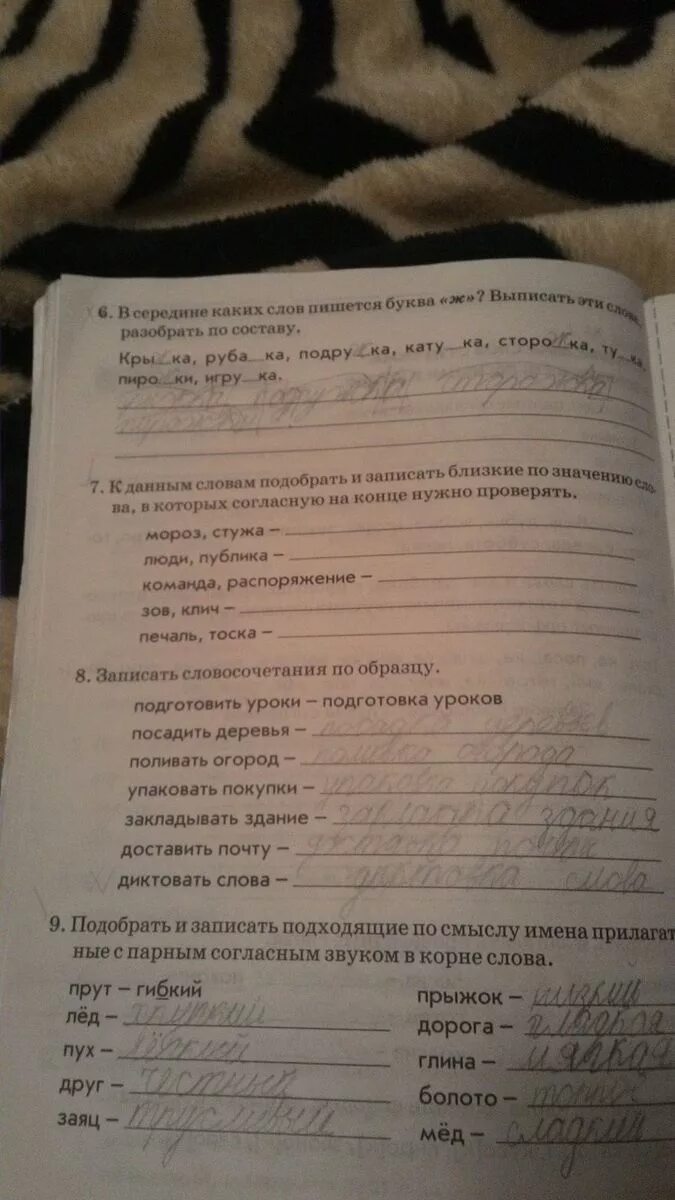 6. В середине каких слов пишется буква «ж»? Выписать эти слова,
разобрать по составу.
Кры_ка, руба_ка, подру_ка, кату_ка, сторо_ка, ту_ка,
пиро_ки, игру_ка.
подружка, сторожка
7. К данным словам подобрать и записать близкие по значению сло-
ва, в которых согласную на конце нужно проверять.
мороз, стужа –
люди, публика –
команда, распоряжение –
зов, клич –
печаль, тоска –
8. Записать словосочетания по образцу.
подготовить уроки – подготовка уроков
посадить деревья – посадка деревьев
поливать огород – поливка огорода
упаковать покупки – упаковка покупок
закладывать здание – здания
доставить почту – почты
диктовать слова – диктовка слова
9. Подобрать и записать подходящие по смыслу имена прилагат
ные с парным согласным звуком в корне слова.
прут – гибкий
лёд – хрупкий
пух – лёгкий
друг – честный
заяц – трусливый
прыжок – низкий
дорога – гладкая
глина – мягкая
болото –
мёд – сладкий